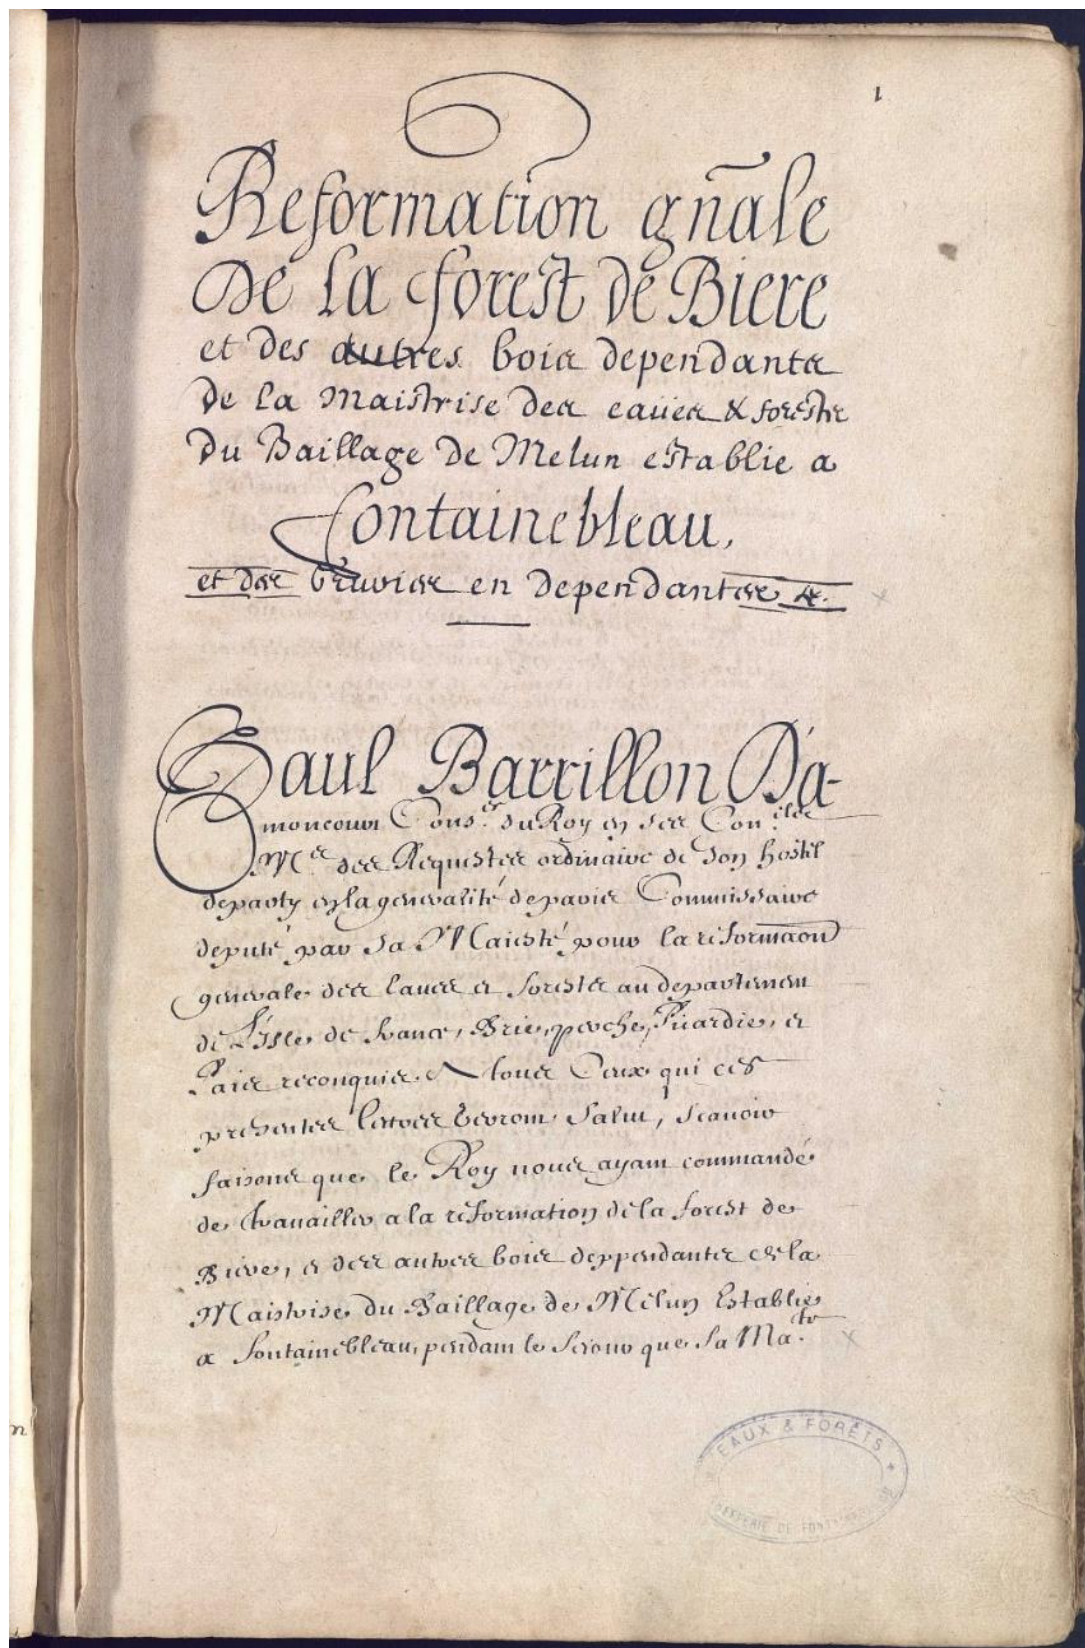 1
Reformation gñale
De La forest de Biere
et des autres bois dependants
De La Maistrise des eaües & forests
Du Baillage de Melun establie a
fontainebleau,
et des bruieres en dependantes &.
Paul Barrillon D'a-
moncourt Conser. du Roy en ses Conseils
Me. des Requestes ordinaire de son hostel
departy en la generalité de paris Commissaire
deputé par Sa Maiesté pour la reformaõn
generale des Eaues et forests au departement
de L'isle de france, Brie, perche, Picardie, et
Pais reconquis. A tous Ceux qui ces
presentes lettres verront Salut, scauoir
faisons que le Roy nous ayant commandé
de trauailler a la reformation de la forest de
Biere, et des autres bois deppendants de la
Maistrise du Baillage de Melun Establie
a fontainebleau, pendant le seiour que sa Ma.té
EAUX & FORÊTS